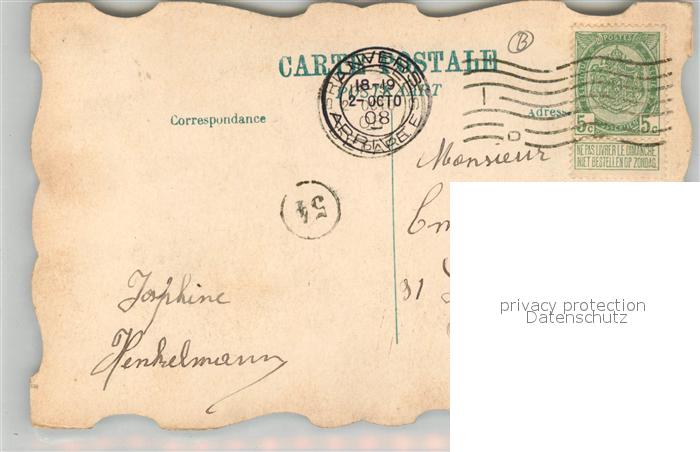 CARTE POSTALE
POSTKAART
Correspondance
Adress
ANVERS
18-19
2-OCTO
08
54
B
POSTES
5c 5c
NE PAS LIVRER LE DIMANCHE
NIET BESTELLEN OP ZONDAG
Monsieur
31
Josphine
Henkelmann
privacy protection
Datenschutz